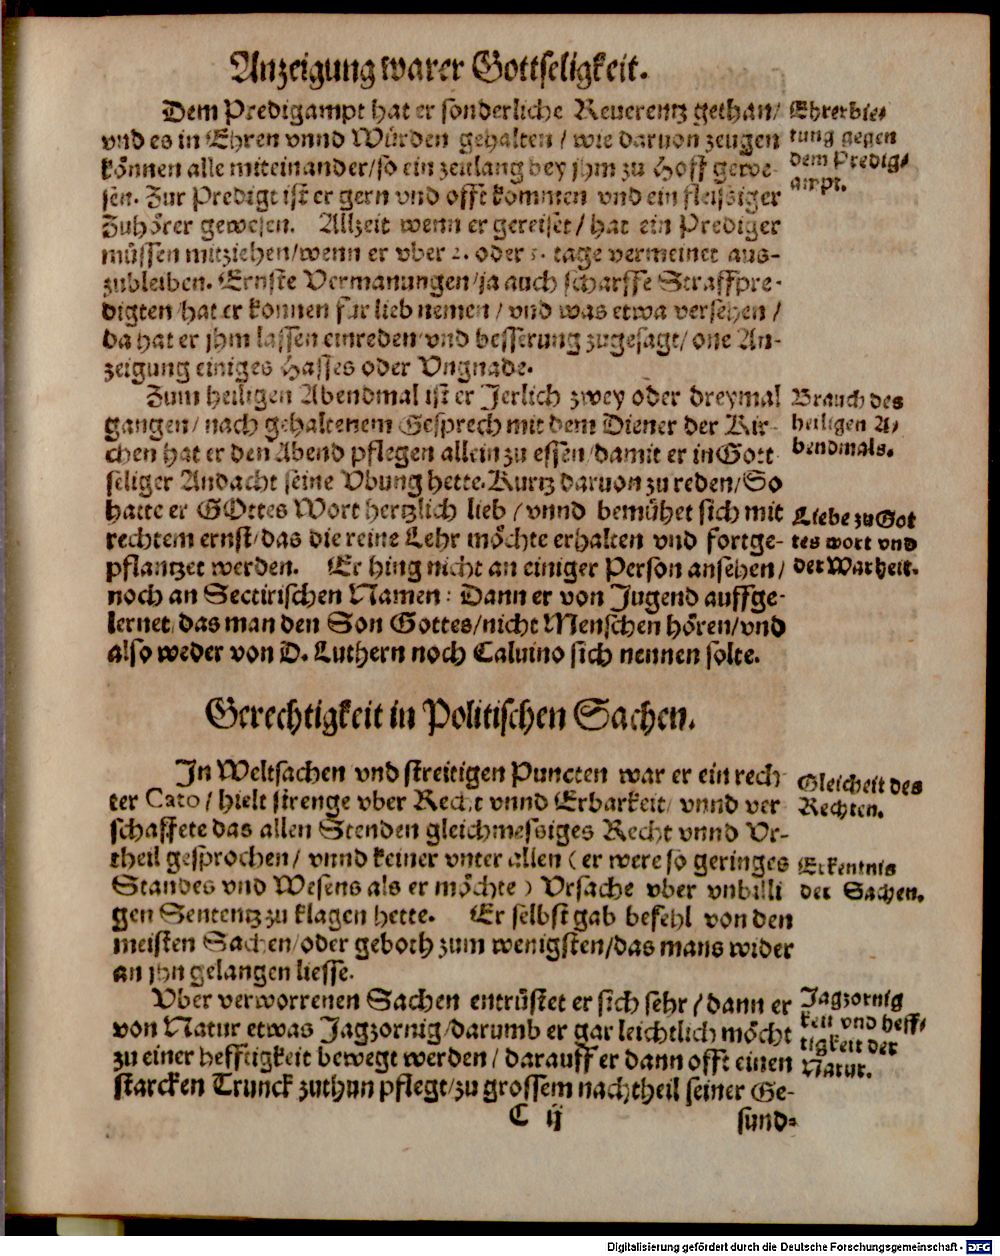 Anzeigung warer Gottseligkeit.
Dem Predigampt hat er sonderliche Reuerentz gethan/
vnd es in Ehren vnnd Würden gehalten / wie daruon zeugen
können alle miteinander/so ein zeitlang bey jhm zu Hoff gewe-
sen. Zur Predigt ist er gern vnd offt kommen vnd ein fleissiger
Zuhörer gewesen. Allzeit wenn er gereiset/ hat ein Prediger
müssen mitziehen/wenn er vber 2. oder 3. tage vermeinet aus-
zubleiben. Ernste Vermanungen/ja auch scharffe Straffpre-
digten/hat er können für lieb nemen / vnd was etwa versehen /
da hat er jhm lassen einreden vnd besserung zugesagt/ one An-
zeigung einiges Hasses oder Vngnade.
Ehrerbie-
tung gegen
dem Predig-
ampt.
Zum heiligen Abendmal ist er Jerlich zwey oder dreymal
gangen/ nach gehaltenem Gesprech mit dem Diener der Kir-
chen hat er den Abend pflegen allein zu essen/damit er in Gott
seliger Andacht seine Vbung hette. Kurtz daruon zu reden/So
hatte er GOttes Wort hertzlich lieb / vnnd bemühet sich mit
rechtem ernst/das die reine Lehr möchte erhalten vnd fortge-
pflantzet werden. Er hing nicht an einiger Person ansehen/
noch an Sectirischen Namen: Dann er von Jugend auffge-
lernet/das man den Son Gottes/nicht Menschen hören/vnd
also weder von D. Luthern noch Caluino sich nennen solte.
Brauch des
heiligen A-
bendmals.
Liebe zu Got
tes wort vnd
der Warheit.
Gerechtigkeit in Politischen Sachen.
In Weltsachen vnd streitigen Puncten war er ein rech
ter Cato / hielt strenge vber Recht vnnd Erbarkeit/ vnnd ver
schaffete das allen Stenden gleichmessiges Recht vnnd Vr-
theil gesprochen/ vnnd keiner vnter allen ( er were so geringes
Standes vnd Wesens als er möchte ) Vrsache vber vnbilli
gen Sententz zu klagen hette. Er selbst gab befehl von den
meisten Sachen/oder geboth zum wenigsten/das mans wider
an jhn gelangen liesse.
Gleicheit des
Rechten.
Erkentnis
der Sachen.
Vber verworrenen Sachen entrüstet er sich sehr / dann er
von Natur etwas Jagzornig/darumb er gar leichtlich möcht
zu einer hefftigkeit bewegt werden / darauff er dann offt einen
starcken Trunck zuthun pflegt/zu grossem nachtheil seiner Ge-
Jagzornig
keit vnd heff-
tigkeit der
Natur.
C ij
sund-
Digitalisierung gefördert durch die Deutsche Forschungsgemeinschaft - DFG